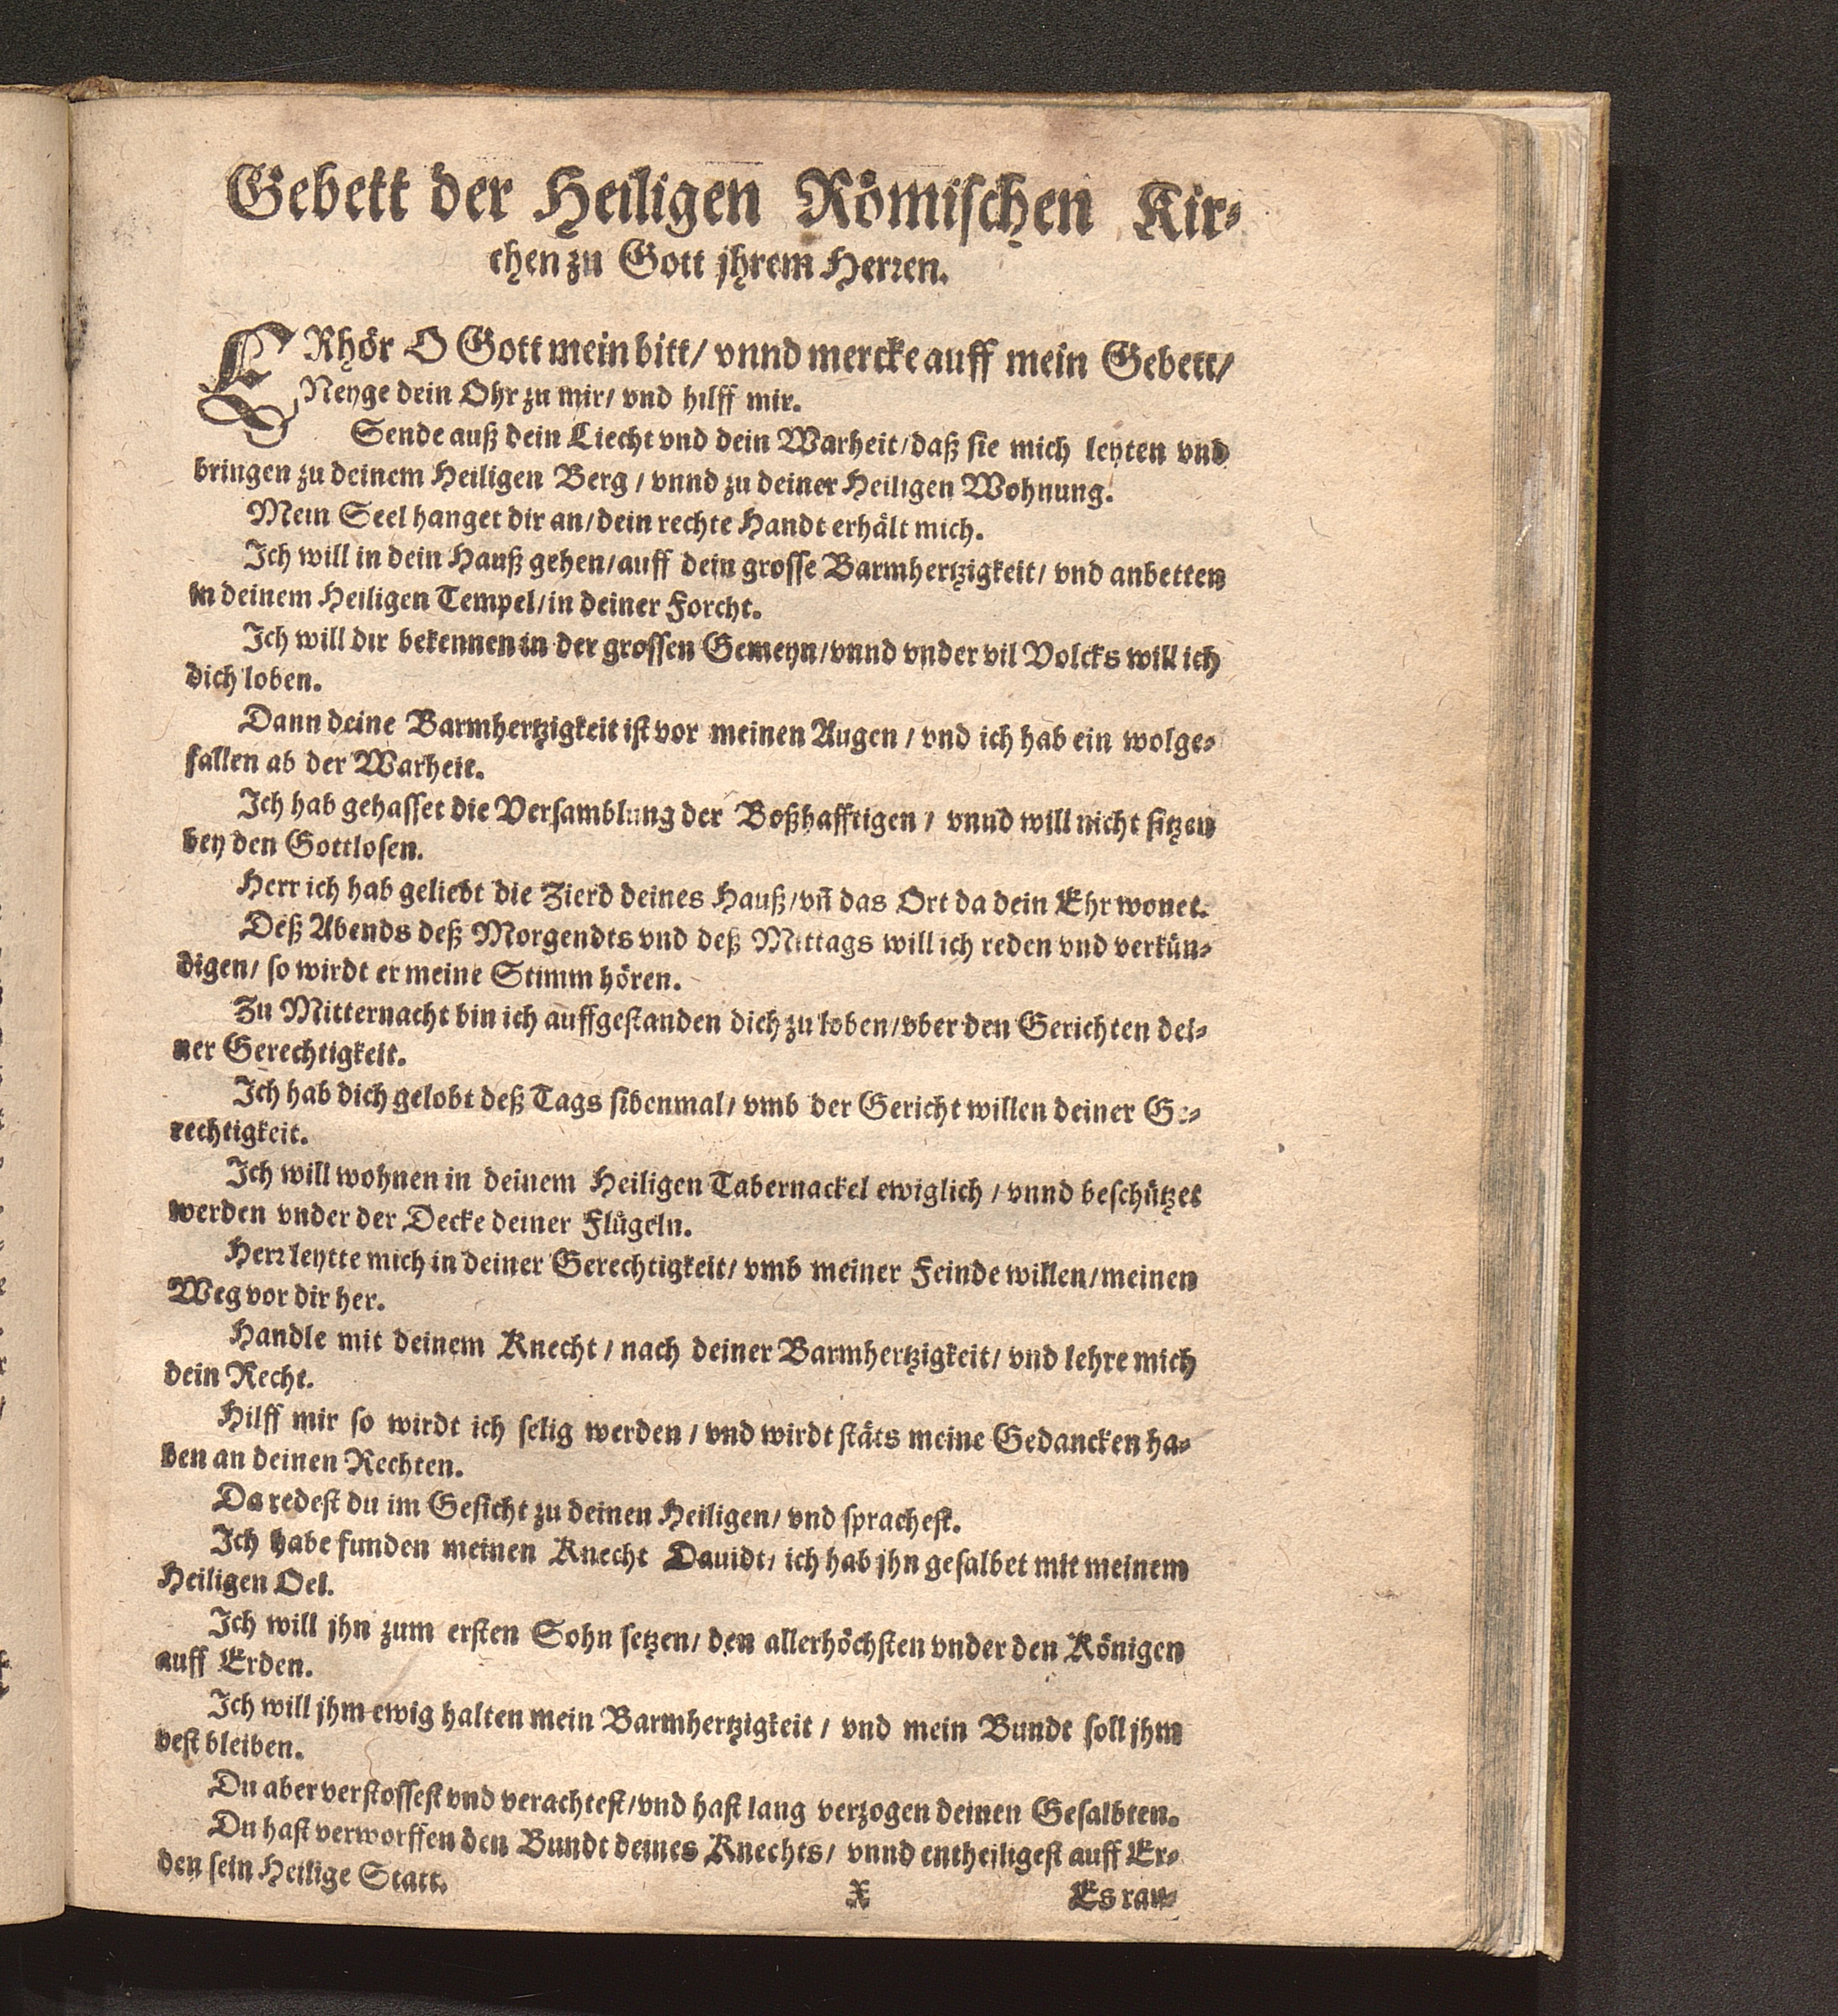 Gebett der Heiligen Römischen Kir⸗
chen zu Gott jhrem Herren.
ERhör O Gott mein bitt/ vnnd mercke auff mein Gebett/
Neyge dein Ohr zu mir/ vnd hilff mir.
Sende auß dein Liecht vnd dein Warheit/ daß sie mich leyten vnd
bringen zu deinem Heiligen Berg / vnnd zu deiner Heiligen Wohnung.
Mein Seel hanget dir an/ dein rechte Handt erhält mich.
Ich will in dein Hauß gehen/ auff dein grosse Barmhertzigkeit/ vnd anbetten
in deinem Heiligen Tempel/ in deiner Forcht.
Ich will dir bekennen in der grossen Gemeyn/ vnnd vnder vil Volcks will ich
dich loben.
Dann deine Barmhertzigkeit ist vor meinen Augen / vnd ich hab ein wolge⸗
fallen ab der Warheit.
Ich hab gehasset die Versamblung der Boßhafftigen / vnnd will nicht sitzen
bey den Gottlosen.
Herr ich hab geliebt die Zierd deines Hauß/ vñ das Ort da dein Ehr wonet.
Deß Abends deß Morgendts vnd deß Mittags will ich reden vnd verkün⸗
digen/ so wirdt er meine Stimm hören.
Zu Mitternacht bin ich auffgestanden dich zu loben/ vber den Gerichten dei⸗
ner Gerechtigkeit.
Ich hab dich gelobt deß Tags sibenmal/ vmb der Gericht willen deiner Ge⸗
rechtigkeit.
Ich will wohnen in deinem Heiligen Tabernackel ewiglich / vnnd beschützet
werden vnder der Decke deiner Flügeln.
Herr leytte mich in deiner Gerechtigkeit/ vmb meiner Feinde willen/ meinen
Weg vor dir her.
Handle mit deinem Knecht / nach deiner Barmhertzigkeit/ vnd lehre mich
dein Recht.
Hilff mir so wirdt ich selig werden / vnd wirdt stäts meine Gedancken ha⸗
ben an deinen Rechten.
Da redest du im Gesicht zu deinen Heiligen/ vnd sprachest.
Ich habe funden meinen Knecht Dauidt/ ich hab jhn gesalbet mit meinem
Heiligen Oel.
Ich will jhn zum ersten Sohn setzen/ den allerhöchsten vnder den Königen
auff Erden.
Ich will jhm ewig halten mein Barmhertzigkeit / vnd mein Bundt soll jhm
vest bleiben.
Du aber verstossest vnd verachtest/ vnd hast lang verzogen deinen Gesalbten.
Du hast verworffen den Bundt deines Knechts/ vnnd entheiligest auff Er⸗
den sein Heilige Statt.
X Es rau⸗